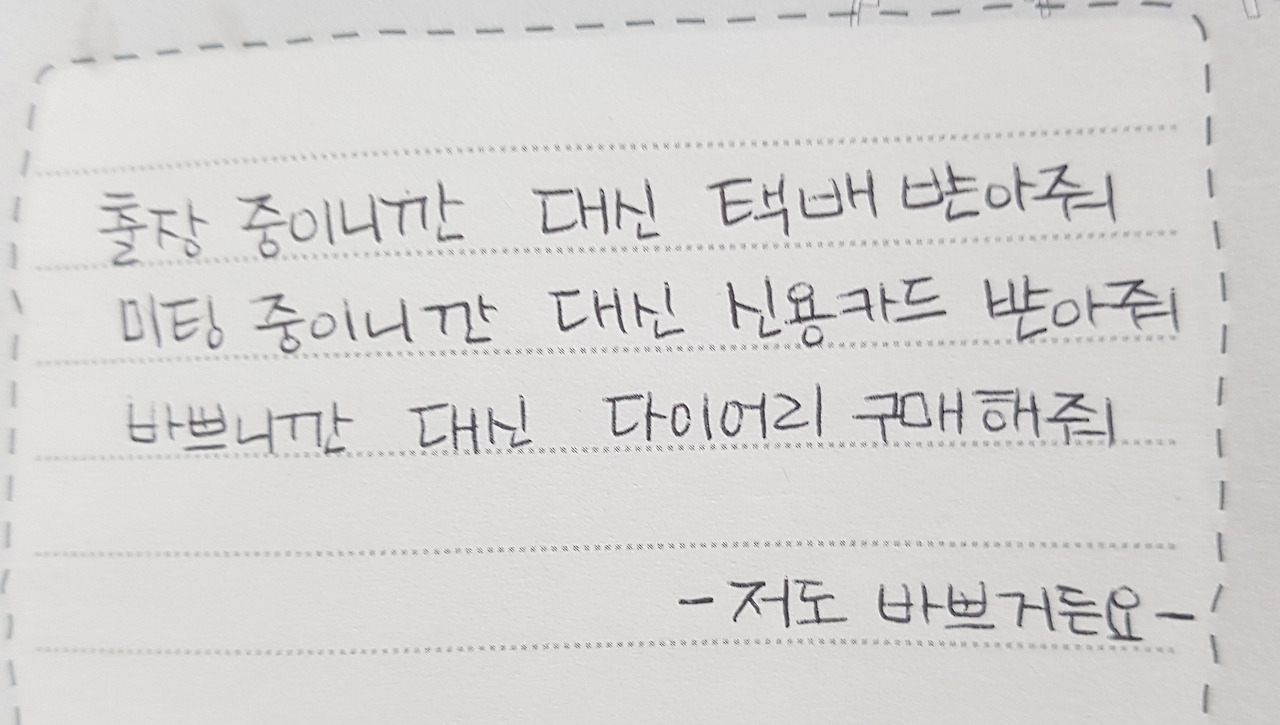 출장 중이니깐 대신 택배 받아줘
미팅 중이니깐 대신 신용카드 받아줘
바쁘니깐 대신 다이어리 구매해줘
- 저도 바쁘거든요 -